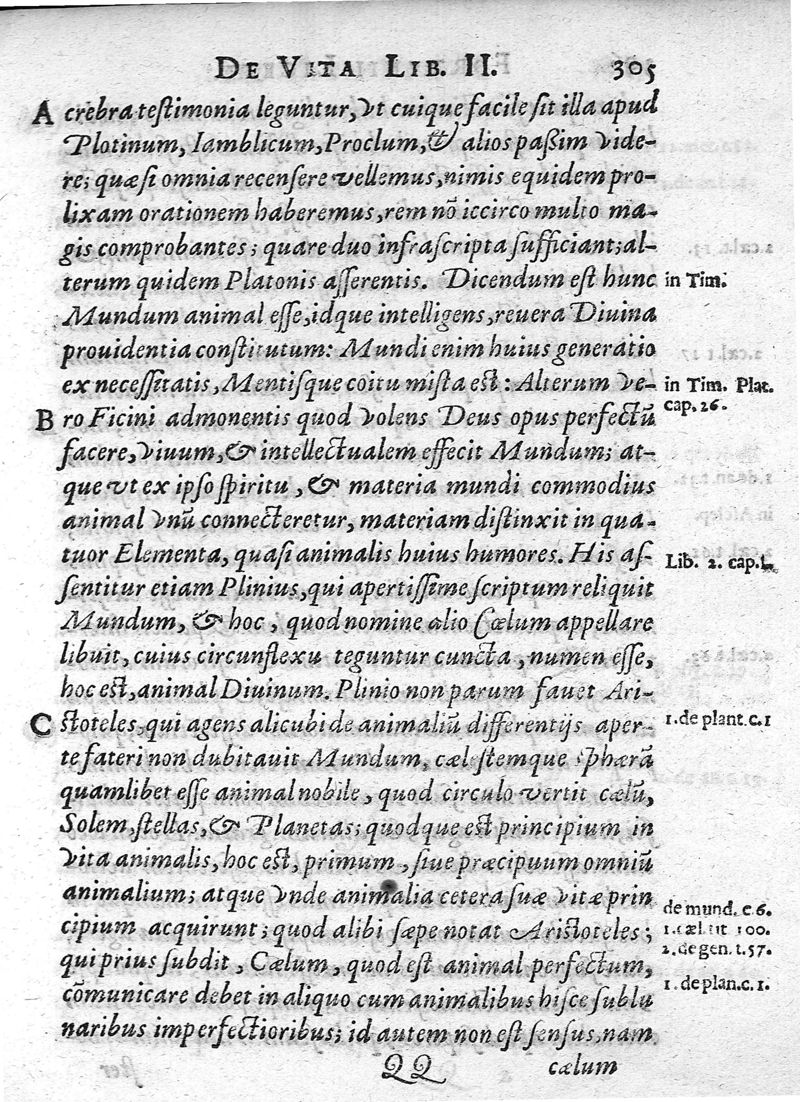 DE VITA LIB. II. 305
A crebra testimonia leguntur, vt cuique facile sit illa apud
Plotinum, Iamblicum, Proclum, & alios paßim vide-
re; quæ si omnia recensere vellemus, nimis equidem pro-
lixam orationem haberemus, rem nō iccirco multo ma-
gis comprobantes; quare duo infrascripta sufficiant; al-
terum quidem Platonis asserentis. Dicendum est hunc in Tim.
Mundum animal esse, idque intelligens, reuera Diuina
prouidentia constitutum: Mundi enim huius generatio
ex necessitatis, Mentisque coitu mista est: Alterum ve- in Tim. Plat.
cap. 26.
B ro Ficini admonentis quod volens Deus opus perfectū
facere, viuum, & intellectualem effecit Mundum; at-
que vt ex ipso spiritu, & materia mundi commodius
animal vnū connecteretur, materiam distinxit in qua-
tuor Elementa, quasi animalis huius humores. His as- Lib. 2. cap. 1.
sentitur etiam Plinius, qui apertissime scriptum reliquit
Mundum, & hoc, quod nomine alio Cælum appellare
libuit, cuius circunflexu teguntur cuncta, numen esse,
hoc est, animal Diuinum. Plinio non parum fauet Ari-
C stoteles, qui agens alicubi de animaliū differentijs aper- 1. de plant. c. 1
te fateri non dubitauit Mundum, cælestemque sphærā
quamlibet esse animal nobile, quod circulo vertit cælū,
Solem, stellas, & Planetas; quodque est principium in
vita animalis, hoc est, primum, siue præcipuum omniū
animalium; atque vnde animalia cetera suæ vitæ prin de mund. c. 6.
cipium acquirunt; quod alibi sæpe notat Aristoteles; 1. cæl. tit 100.
qui prius subdit, Cælum, quod est animal perfectum, 2. de gen. t. 57.
cōmunicare debet in aliquo cum animalibus hisce sublu 1. de plan. c. 1.
naribus imperfectioribus; id autem non est sensus, nam
QQ cælum